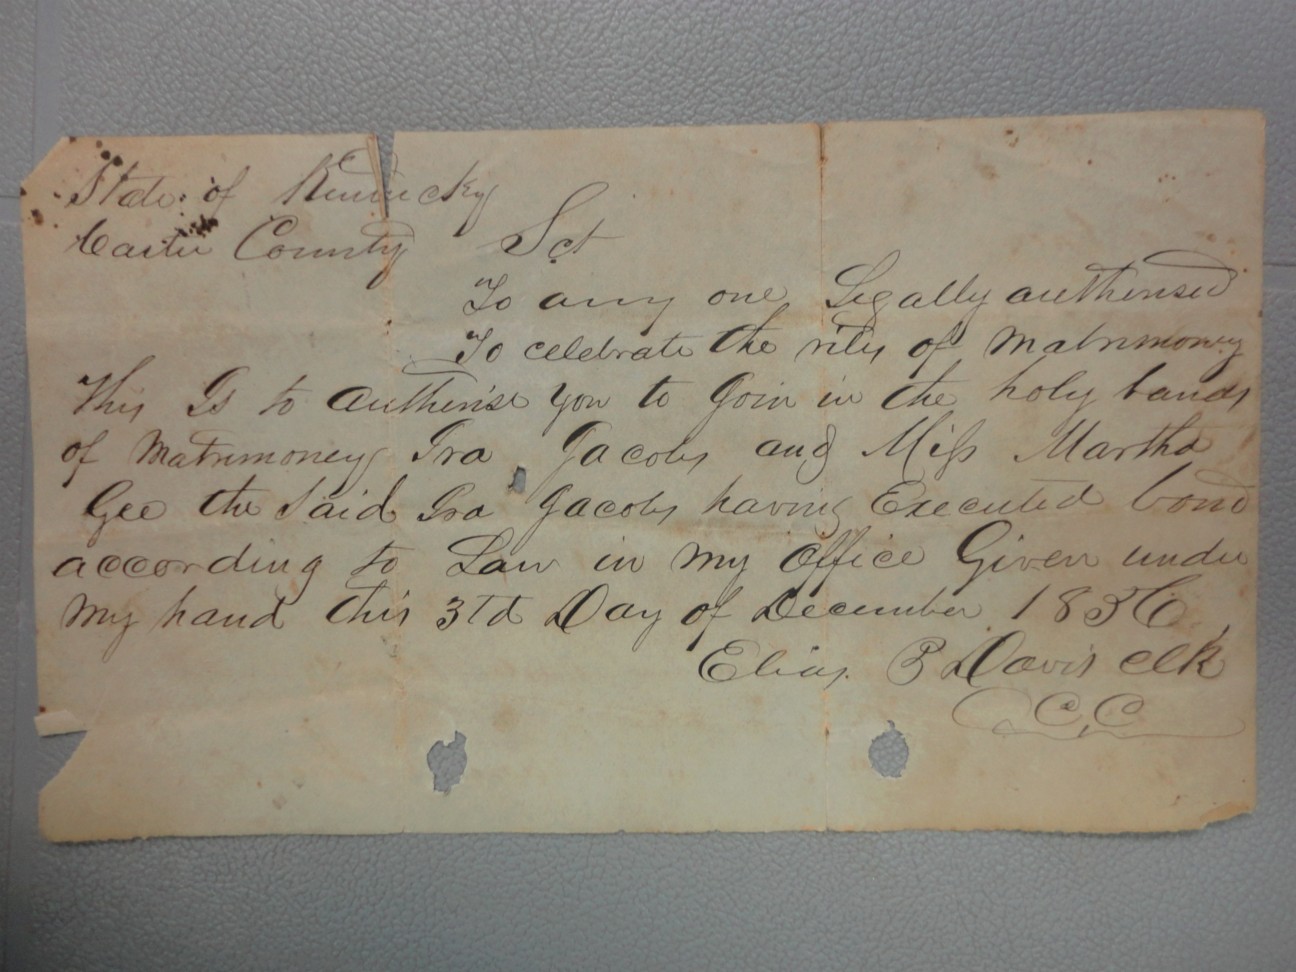 State of Kentucky
Carter County Sct
To any one Legally authorised
To celebrate the rites of Matrimoney
This Is to authorise you to Join in the holy bands
of Matrimoney Ira Jacobs and Miss Martha
Gee the Said Ira Jacobs having Executed bond
according to Law in my office Given under
my hand this 3rd Day of December 1856
Elias P Davis clk
C, C